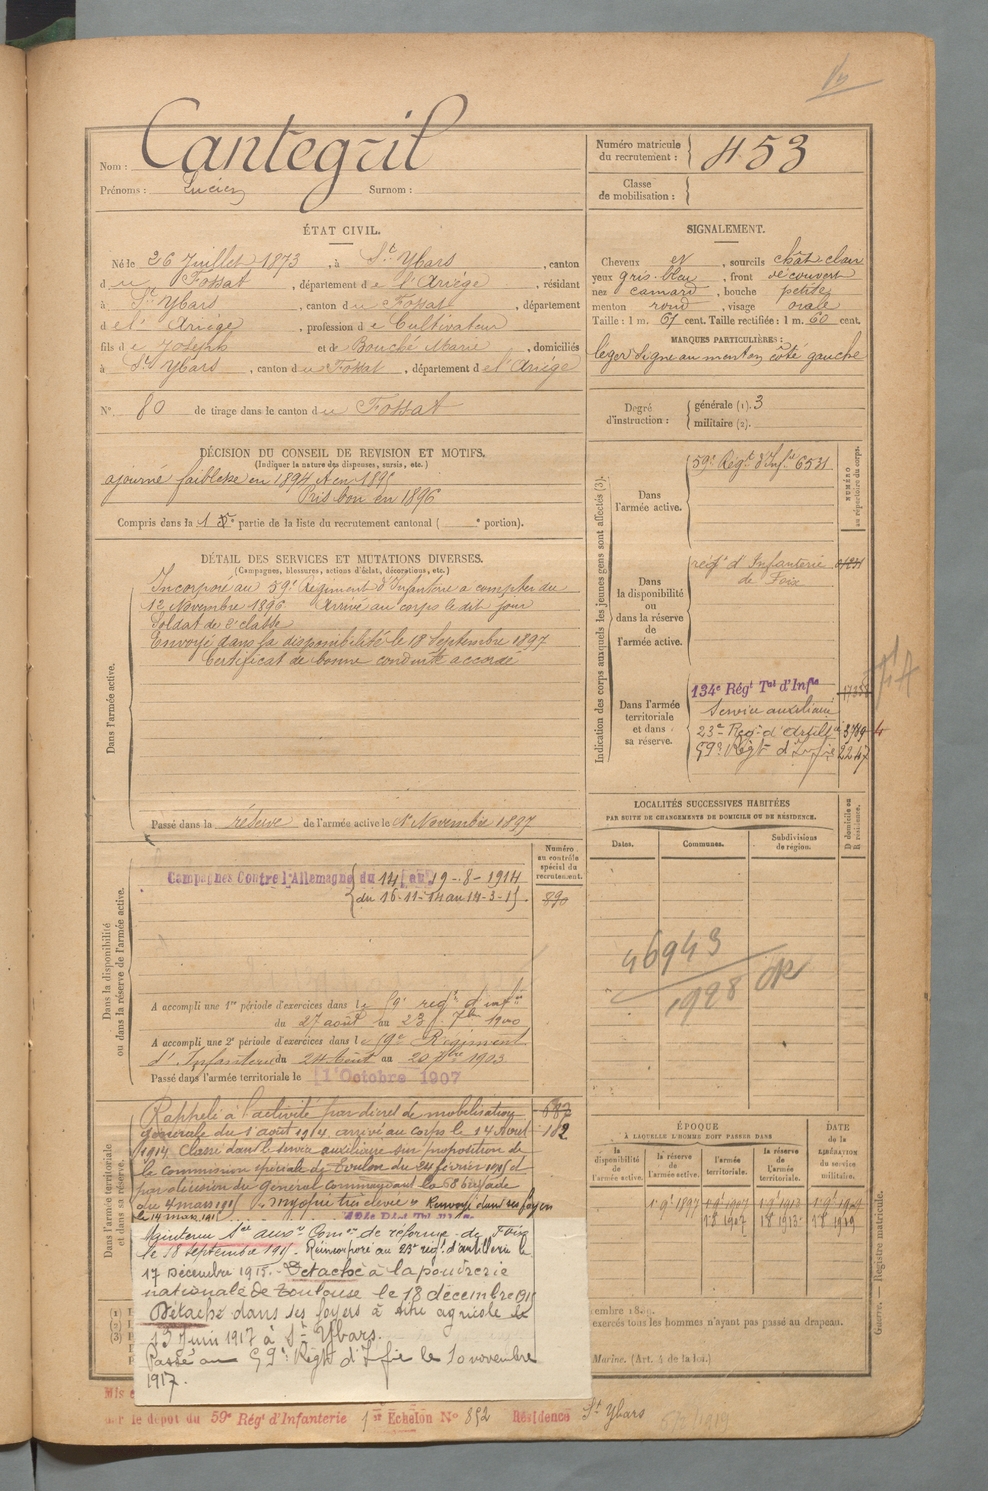 Nom : Cantegril
Prénoms : Lucien Surnom :
Numéro matricule du recrutement : 453
Classe de mobilisation :
ÉTAT CIVIL.
Né le 26 Juillet 1873, à St Ybars, canton
du Fossat, département de l'Ariège, résidant
à St Ybars, canton du Fossat, département
de l'Ariège, profession de Cultivateur
fils de Joseph et de Bouché Marie, domiciliés
à St Ybars, canton du Fossat, département de l'Ariège
N° 80 de tirage dans le canton du Fossat
SIGNALEMENT.
Cheveux et, sourcils chât clair
yeux gris-bleu, front découvert
nez camard, bouche petite
menton rond, visage ovale
Taille : 1 m. 61 cent. Taille rectifiée : 1 m. 60 cent.
MARQUES PARTICULIÈRES :
léger signe au menton côté gauche
Degré d'instruction : générale (1). 3
militaire (2).
DÉCISION DU CONSEIL DE REVISION ET MOTIFS.
(Indiquer la nature des dispenses, sursis, etc.)
ajourné faiblesse en 1894 et en 1895
Pris bon en 1896
Compris dans la 1re partie de la liste du recrutement cantonal ( e portion).
DÉTAIL DES SERVICES ET MUTATIONS DIVERSES.
(Campagnes, blessures, actions d'éclat, décorations, etc.)
Dans l'armée active.
Incorporé au 59e Régiment d'Infanterie à compter du
12 Novembre 1896 Arrivé au corps le dit jour
Soldat de 2e classe
Envoyé dans la disponibilité le 18 Septembre 1897
Certificat de bonne conduite accordé
Passé dans la réserve de l'armée active le 1er Novembre 1897
Indication des corps auxquels les jeunes gens sont affectés (3).
NUMÉRO au répertoire du corps.
Dans l'armée active.
59e Régt d'Infie 6531
Dans la disponibilité ou dans la réserve de l'armée active.
régt d'Infanterie
de Foix
Dans l'armée territoriale et dans sa réserve.
134e Régt Tal d'Infie
Service auxiliaire
23e Regt d'Artillie
59e Régt d'Infie 2247
LOCALITÉS SUCCESSIVES HABITÉES
PAR SUITE DE CHANGEMENTS DE DOMICILE OU DE RÉSIDENCE.
Dates. Communes. Subdivisions de région. D domicile ou R résidence.
46943
1928 OK
Dans la disponibilité ou dans la réserve de l'armée active.
Numéro au contrôle spécial du recrutement.
Campagnes Contre l'Allemagne du 14 au 19-8-1914
du 16-11-14 au 14-3-15. 890
A accompli une 1re période d'exercices dans le 59e regt d'infie
du 27 août au 23 7bre 1900
A accompli une 2e période d'exercices dans le 59e Régiment
d'Infanterie du 24 Août au 20 7bre 1903
Passé dans l'armée territoriale le 1er Octobre 1907
Dans l'armée territoriale et dans sa réserve.
Rappelé à l'activité par décret de mobilisation
générale du 1 août 1914 arrivé au corps le 14 Août
1914 Classé dans le service auxiliaire sur proposition de
la commission spéciale de Toulon du 24 février 1915 et
par décision du Général Commandant la 68e brigade
du 4 mars 1915 "myopie très élevée" Renvoyé dans ses foyers
le 14 mars 1915
Maintenu Sce auxre Comon de réforme de Foix
le 18 septembre 1915. Réincorporé au 23e régt d'artillerie le
17 Décembre 1915. Détaché à la poudrerie
nationale de Toulouse le 18 décembre 1915
Détaché dans ses foyers à titre agricole le
13 Juin 1917 à St Ybars.
Passé au 59e Régt d'Infie le 10 novembre
1917.
ÉPOQUE
A LAQUELLE L'HOMME DOIT PASSER DANS
la disponibilité de l'armée active. la réserve de l'armée active. l'armée territoriale. la réserve de l'armée territoriale.
DATE de la LIBÉRATION du service militaire.
1 9 1897
(1)
(2)
(3)
exercés tous les hommes n'ayant pas passé au drapeau.
Marine. (Art. 4 de la loi.)
Guerre. — Registre matricule.
par le dépôt du 59e Régt d'Infanterie 1er Echelon N° 892 Résidence St Ybars